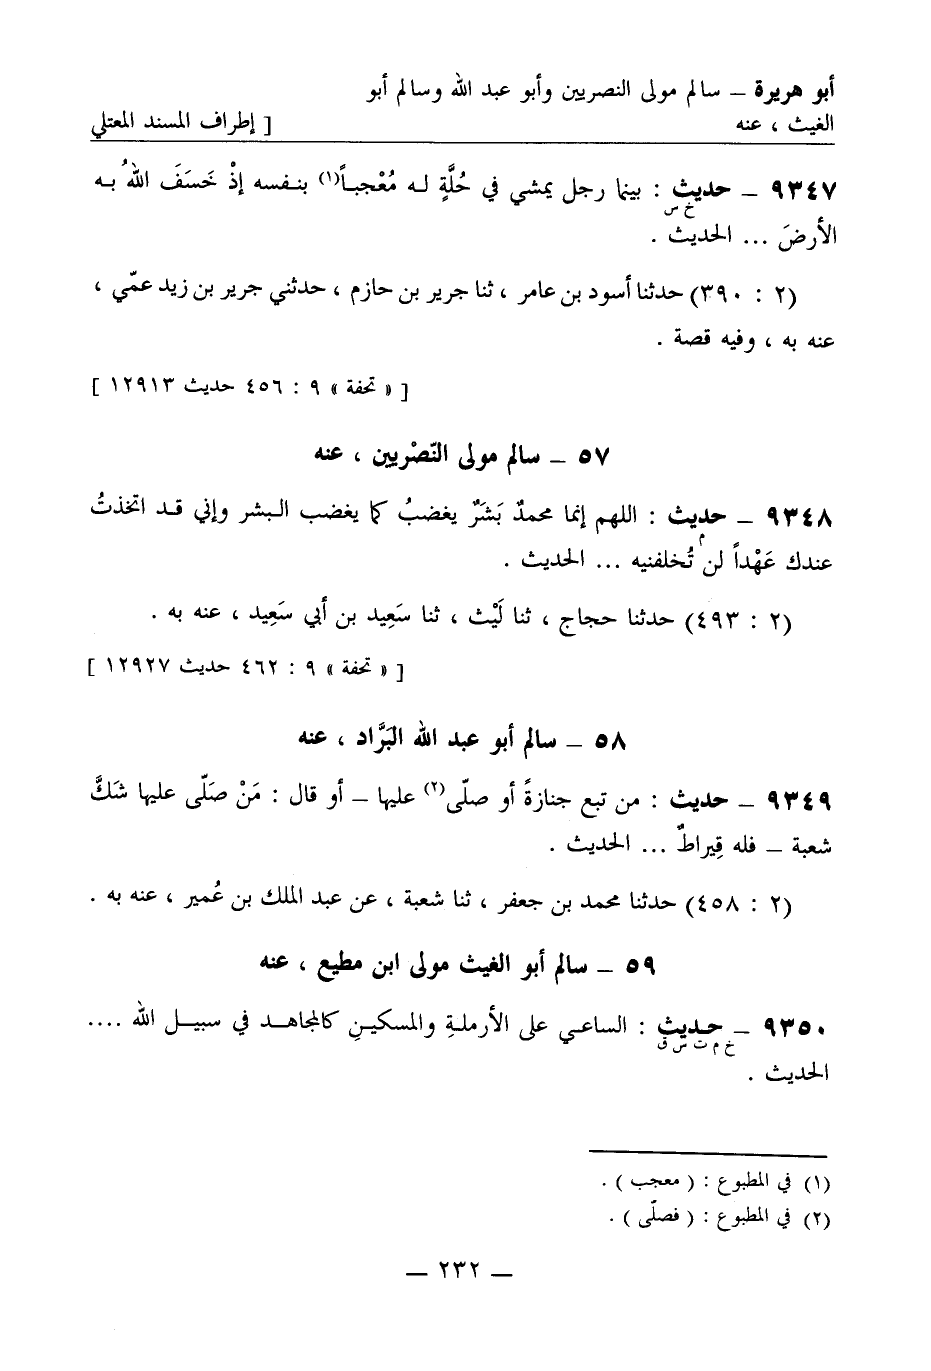 أبو هريرة – سالم مولى النصريين وأبو عبد الله وسالم أبو
الغيث ، عنه [ إطراف المسند المعتلي
٩٣٤٧ – حديث : بينما رجل يمشي في حُلَّةٍ له مُعْجباً(١) بنفسه إذْ خَسَفَ اللهُ به
خ س
الأرضَ ... الحديث .
(٢ : ٣٩٠) حدثنا أسود بن عامر ، ثنا جرير بن حازم ، حدثني جرير بن زيد عمّي ،
عنه به ، وفيه قصة .
[ « تحفة » ٩ : ٤٥٦ حديث ١٢٩١٣ ]
٥٧ – سالم مولى النّصْريين ، عنه
٩٣٤٨ – حديث : اللهم إنما محمدٌ بَشَرٌ يغضبُ كما يغضب البشر وإني قد اتخذتُ
م
عندك عَهْداً لن تُخلفنيه ... الحديث .
(٢ : ٤٩٣) حدثنا حجاج ، ثنا لَيْث ، ثنا سَعِيد بن أبي سَعِيد ، عنه به .
[ « تحفة » ٩ : ٤٦٢ حديث ١٢٩٢٧ ]
٥٨ – سالم أبو عبد الله البَرَّاد ، عنه
٩٣٤٩ – حديث : من تبع جنازةً أو صلّى(٢) عليها – أو قال : مَنْ صَلّى عليها شَكَّ
شعبة – فله قِيراطٌ ... الحديث .
(٢ : ٤٥٨) حدثنا محمد بن جعفر ، ثنا شعبة ، عن عبد الملك بن عُمير ، عنه به .
٥٩ – سالم أبو الغيث مولى ابن مطيع ، عنه
٩٣٥٠ – حديث : الساعي على الأرملةِ والمسكينِ كالمجاهد في سبيل الله ....
خ م ت س ق
الحديث .
(١) في المطبوع : ( معجب ) .
(٢) في المطبوع : ( فصلّى ) .
– ٢٣٢ –